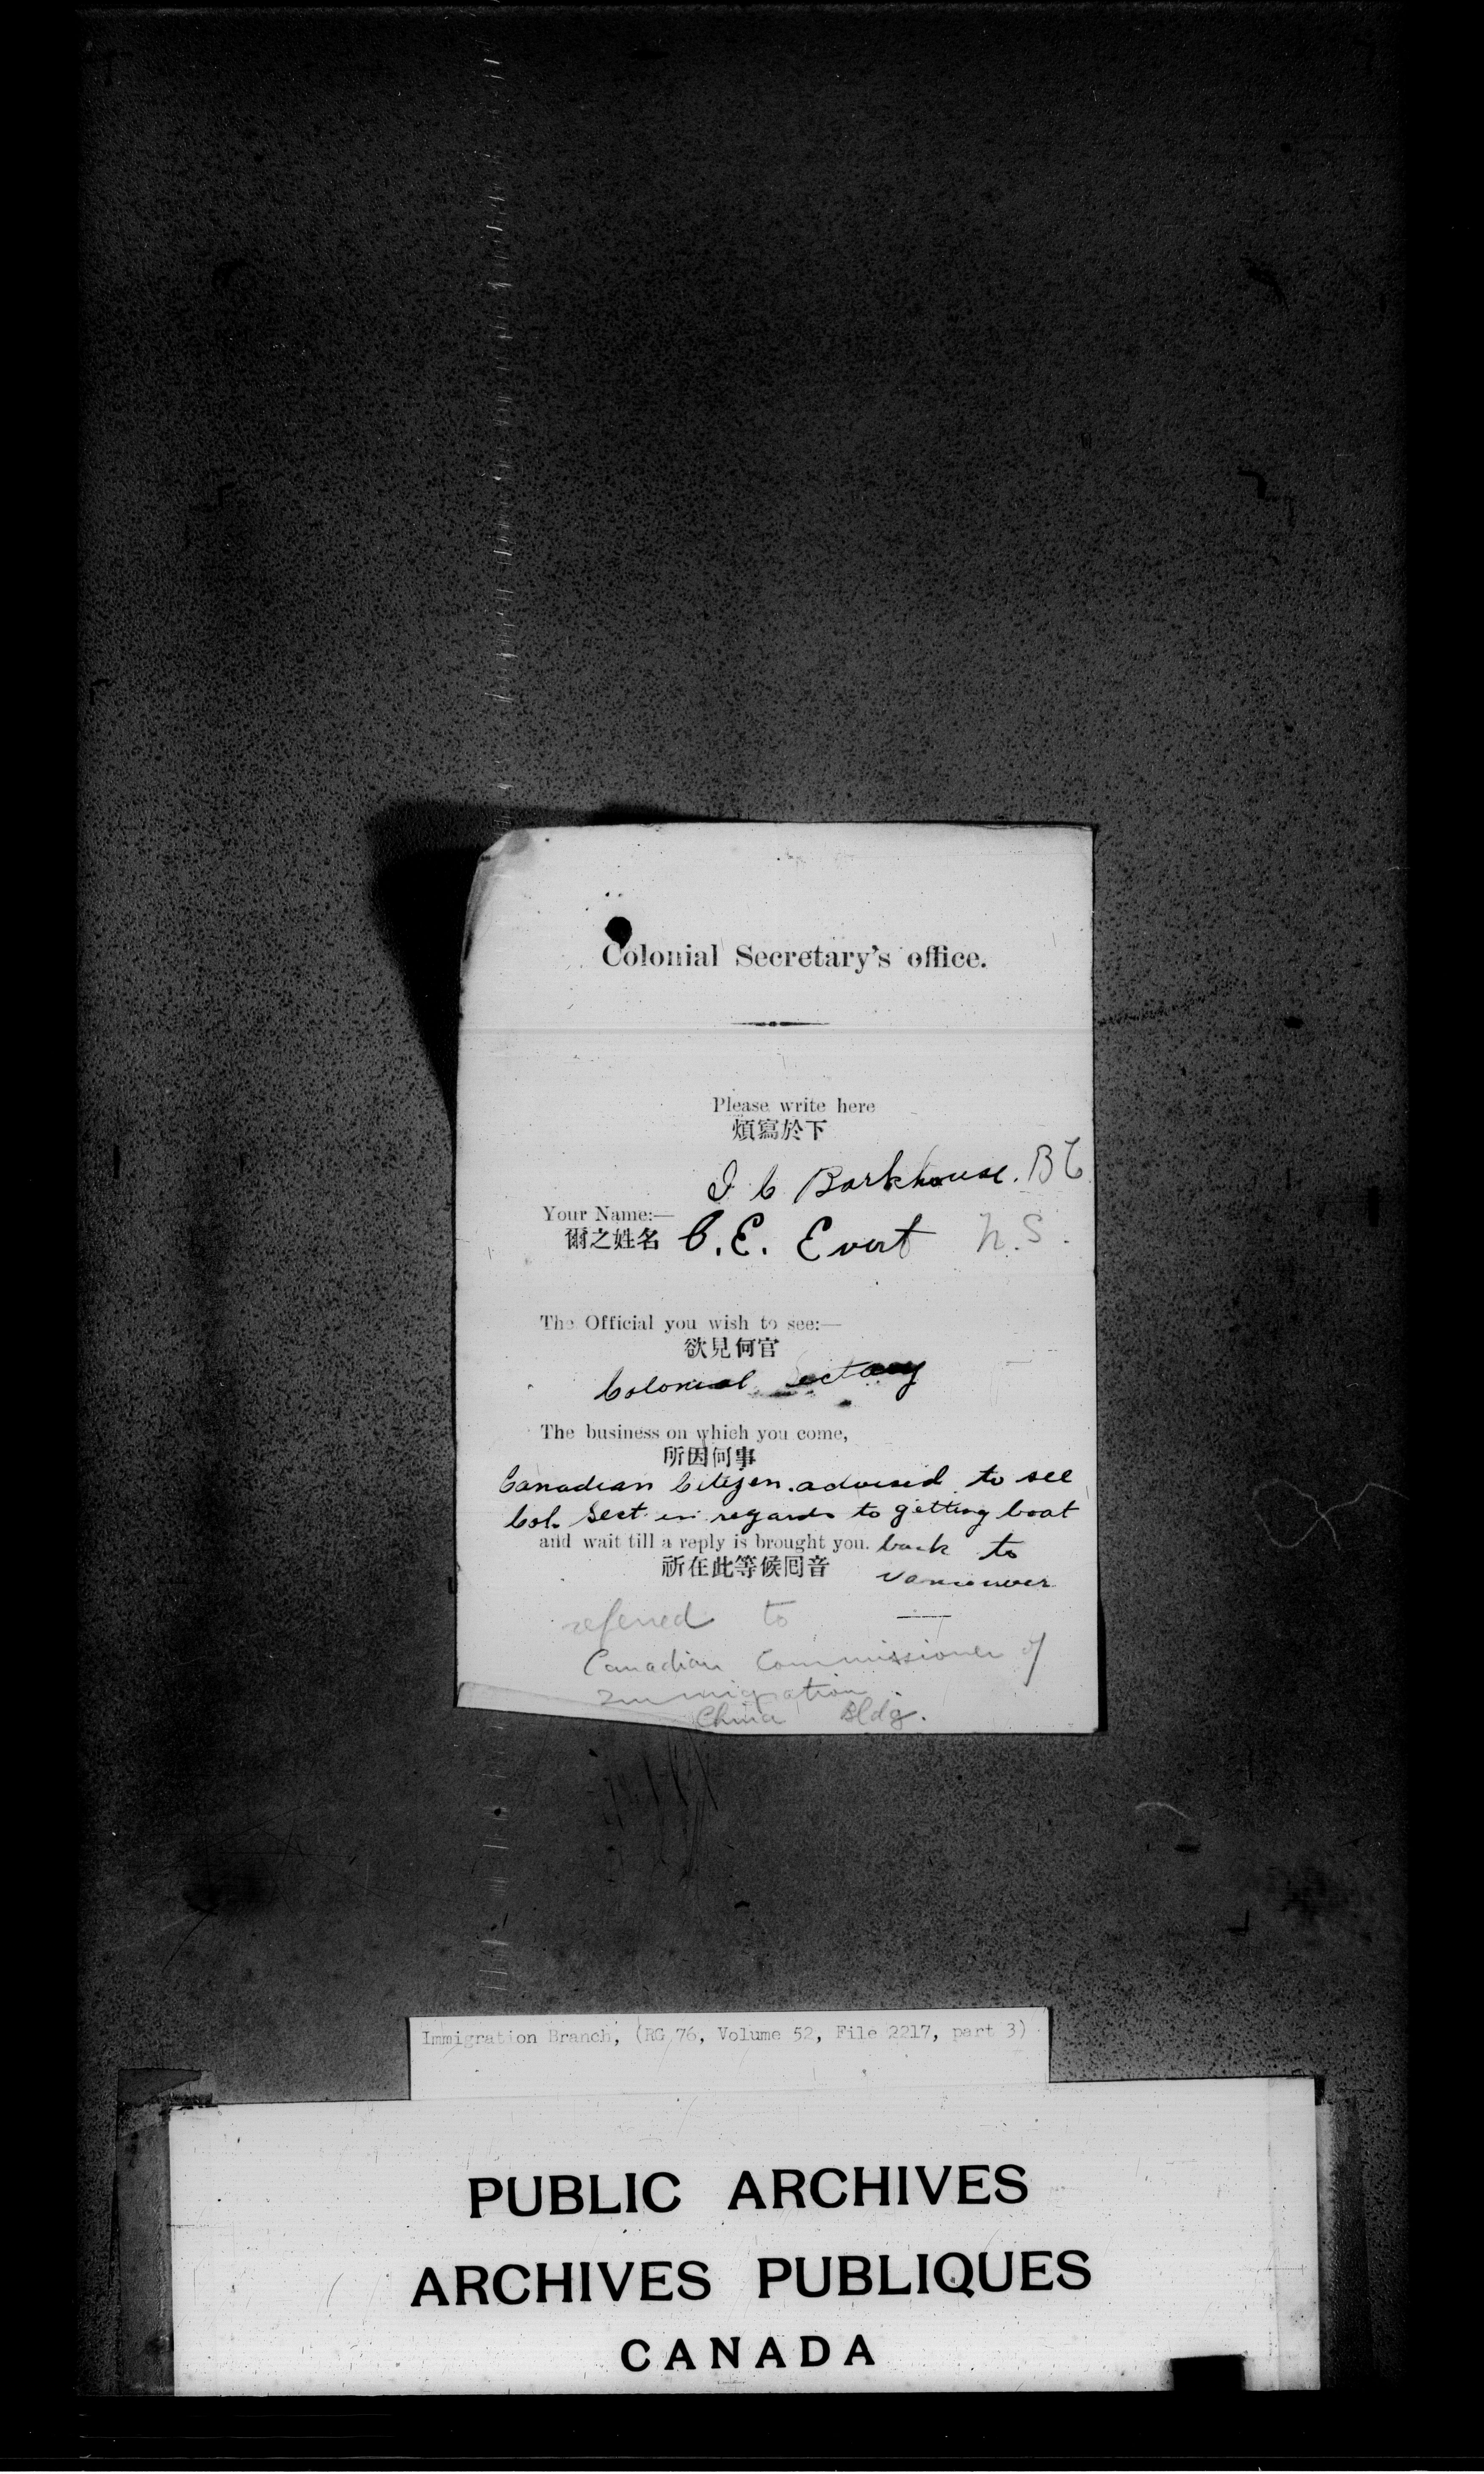 Colonial Secretary's office.
Please write here
煩寫於下
I C Barkhouse. BC
Your Name:—
爾之姓名 C. E. Evert N. S.
The Official you wish to see:—
欲見何官
Colonial Sectary
The business on which you come,
所因何事
Canadian Citizen. advised to see
Col. Sect. in regards to getting boat
and wait till a reply is brought you. back to
祈在此等候囘音 Vancouver
referred to
Canadian Commissioner of
Immigration
China Bldg.
Immigration Branch, (RG 76, Volume 52, File 2217, part 3)
PUBLIC ARCHIVES
ARCHIVES PUBLIQUES
CANADA